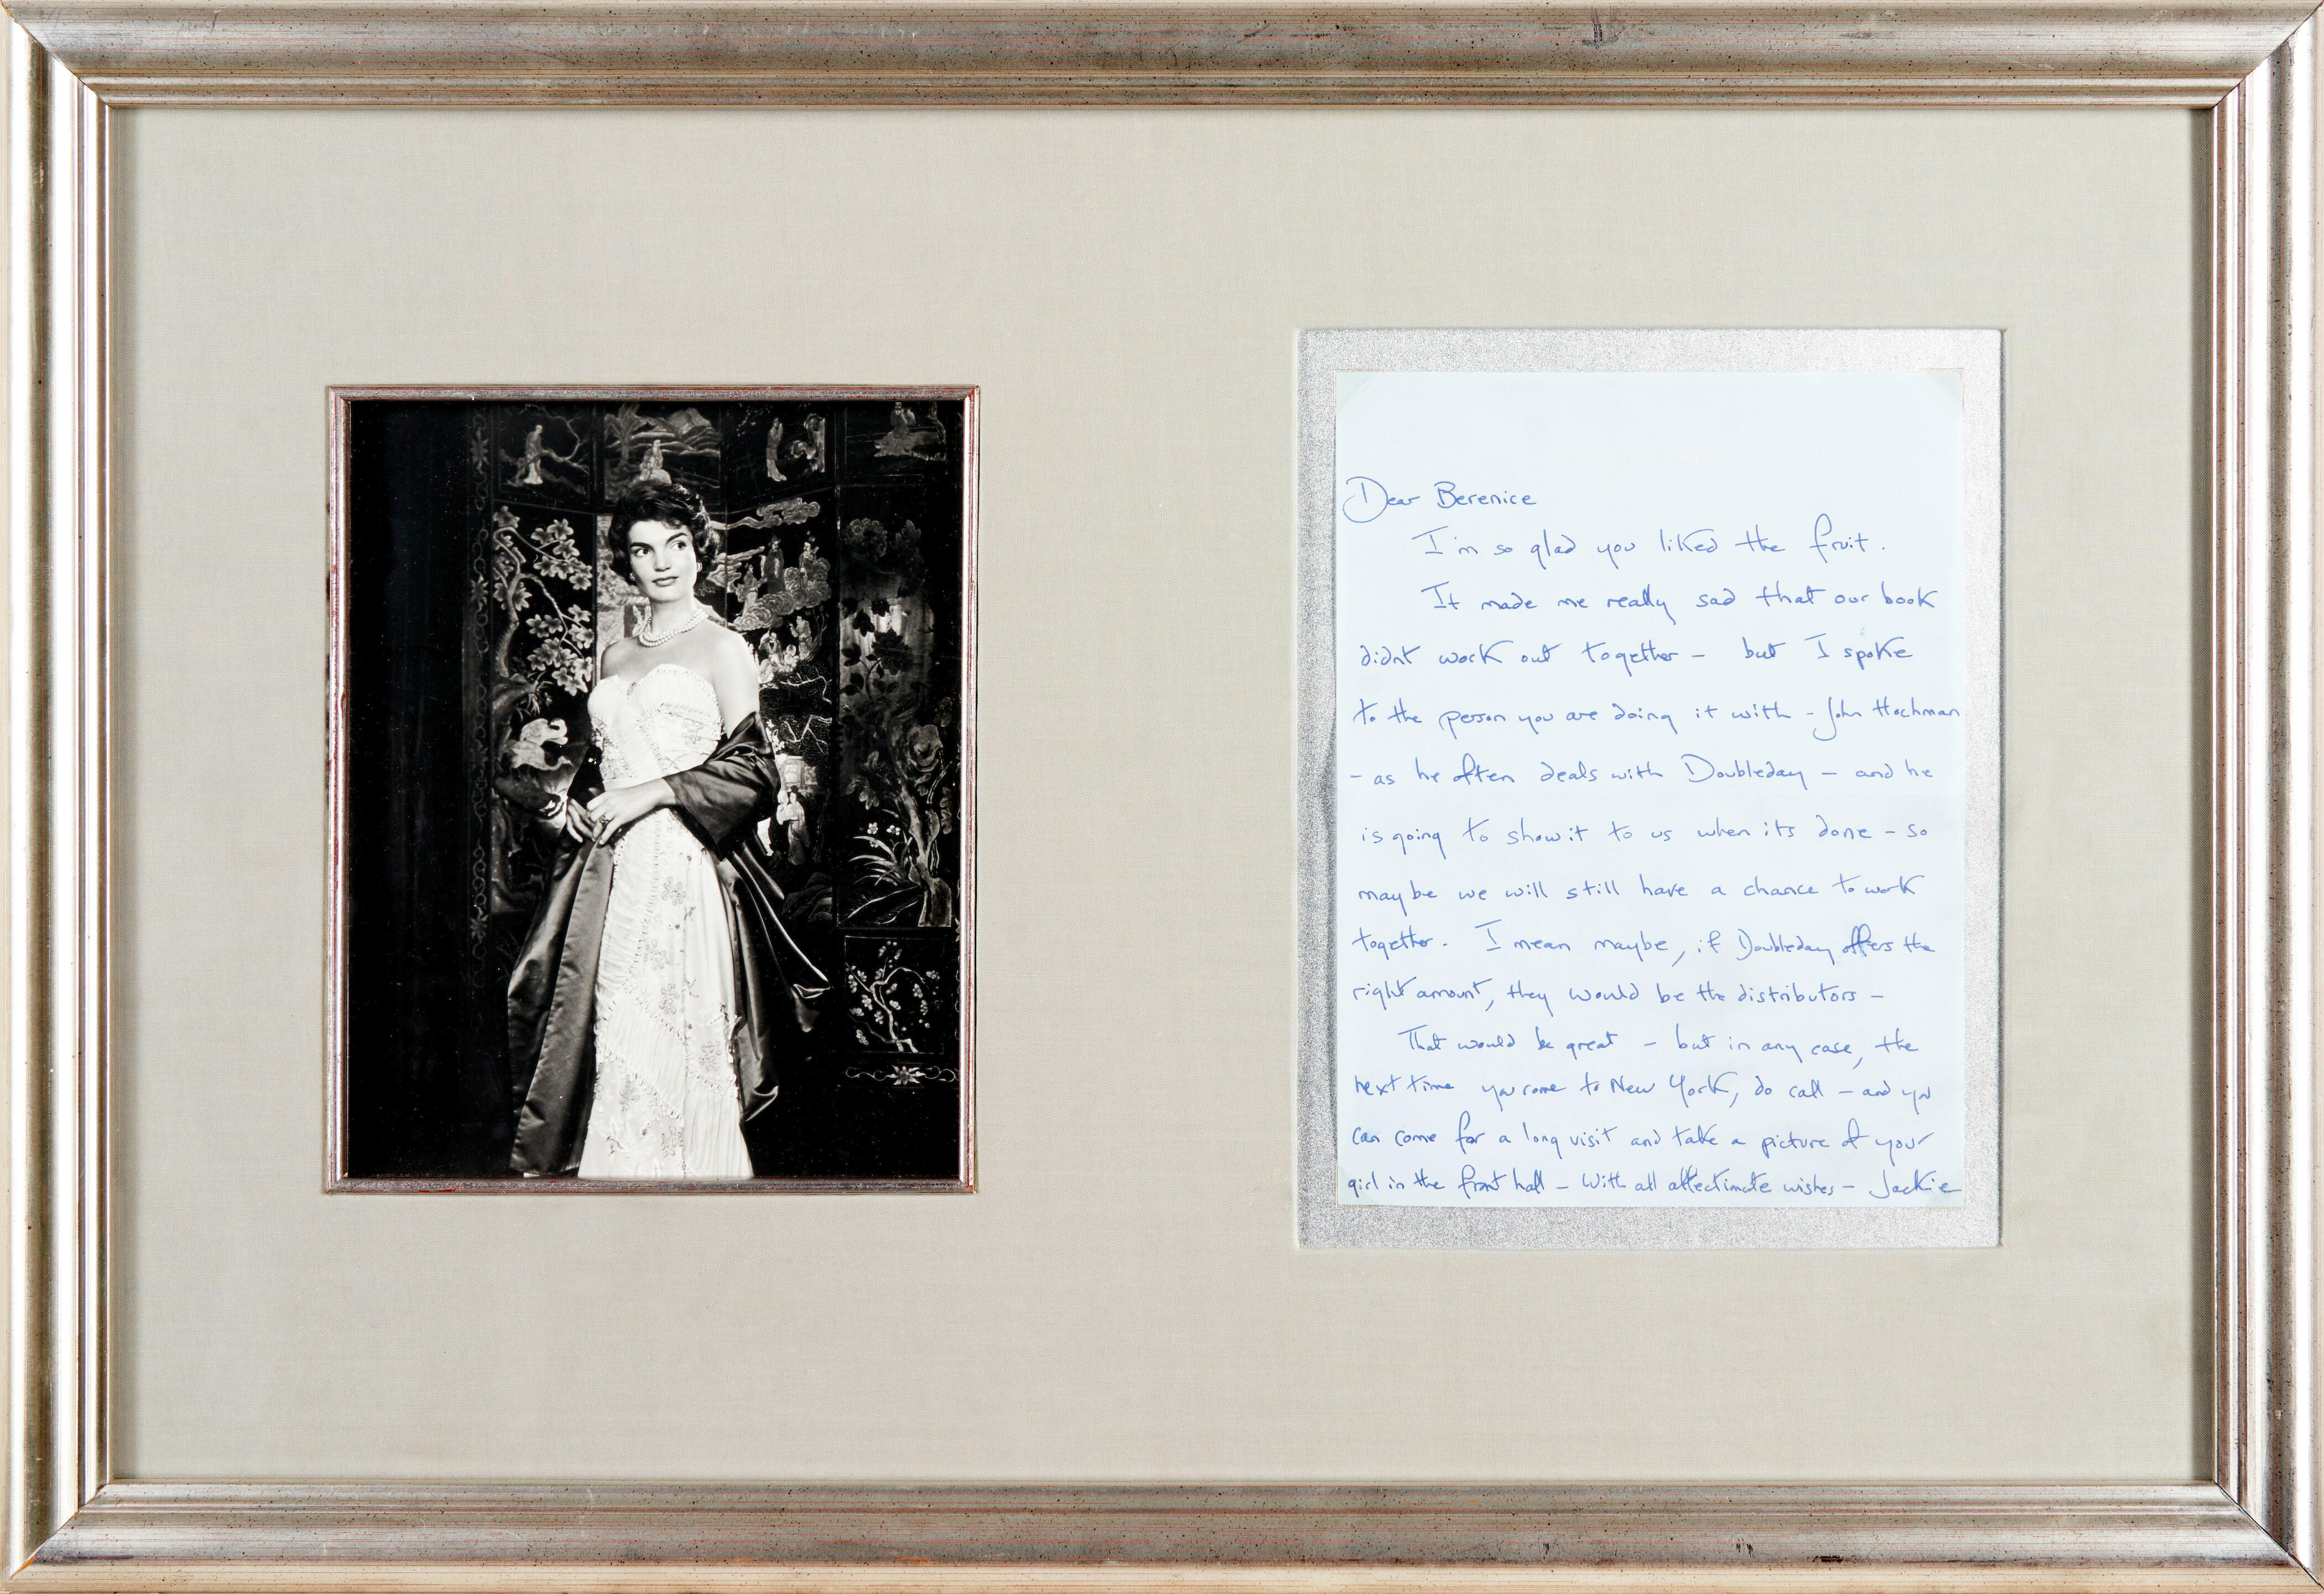 Dear Berenice
I'm so glad you liked the fruit.
It made me really sad that our book
didnt work out together – but I spoke
to the person you are doing it with – John Hochman
– as he often deals with Doubleday – and he
is going to show it to us when its done – so
maybe we will still have a chance to work
together. I mean maybe, if Doubleday offers the
right amount, they would be the distributors –
That would be great – but in any case, the
next time you come to New York, do call – and you
can come for a long visit and take a picture of your
girl in the front hall – With all affectionate wishes – Jackie